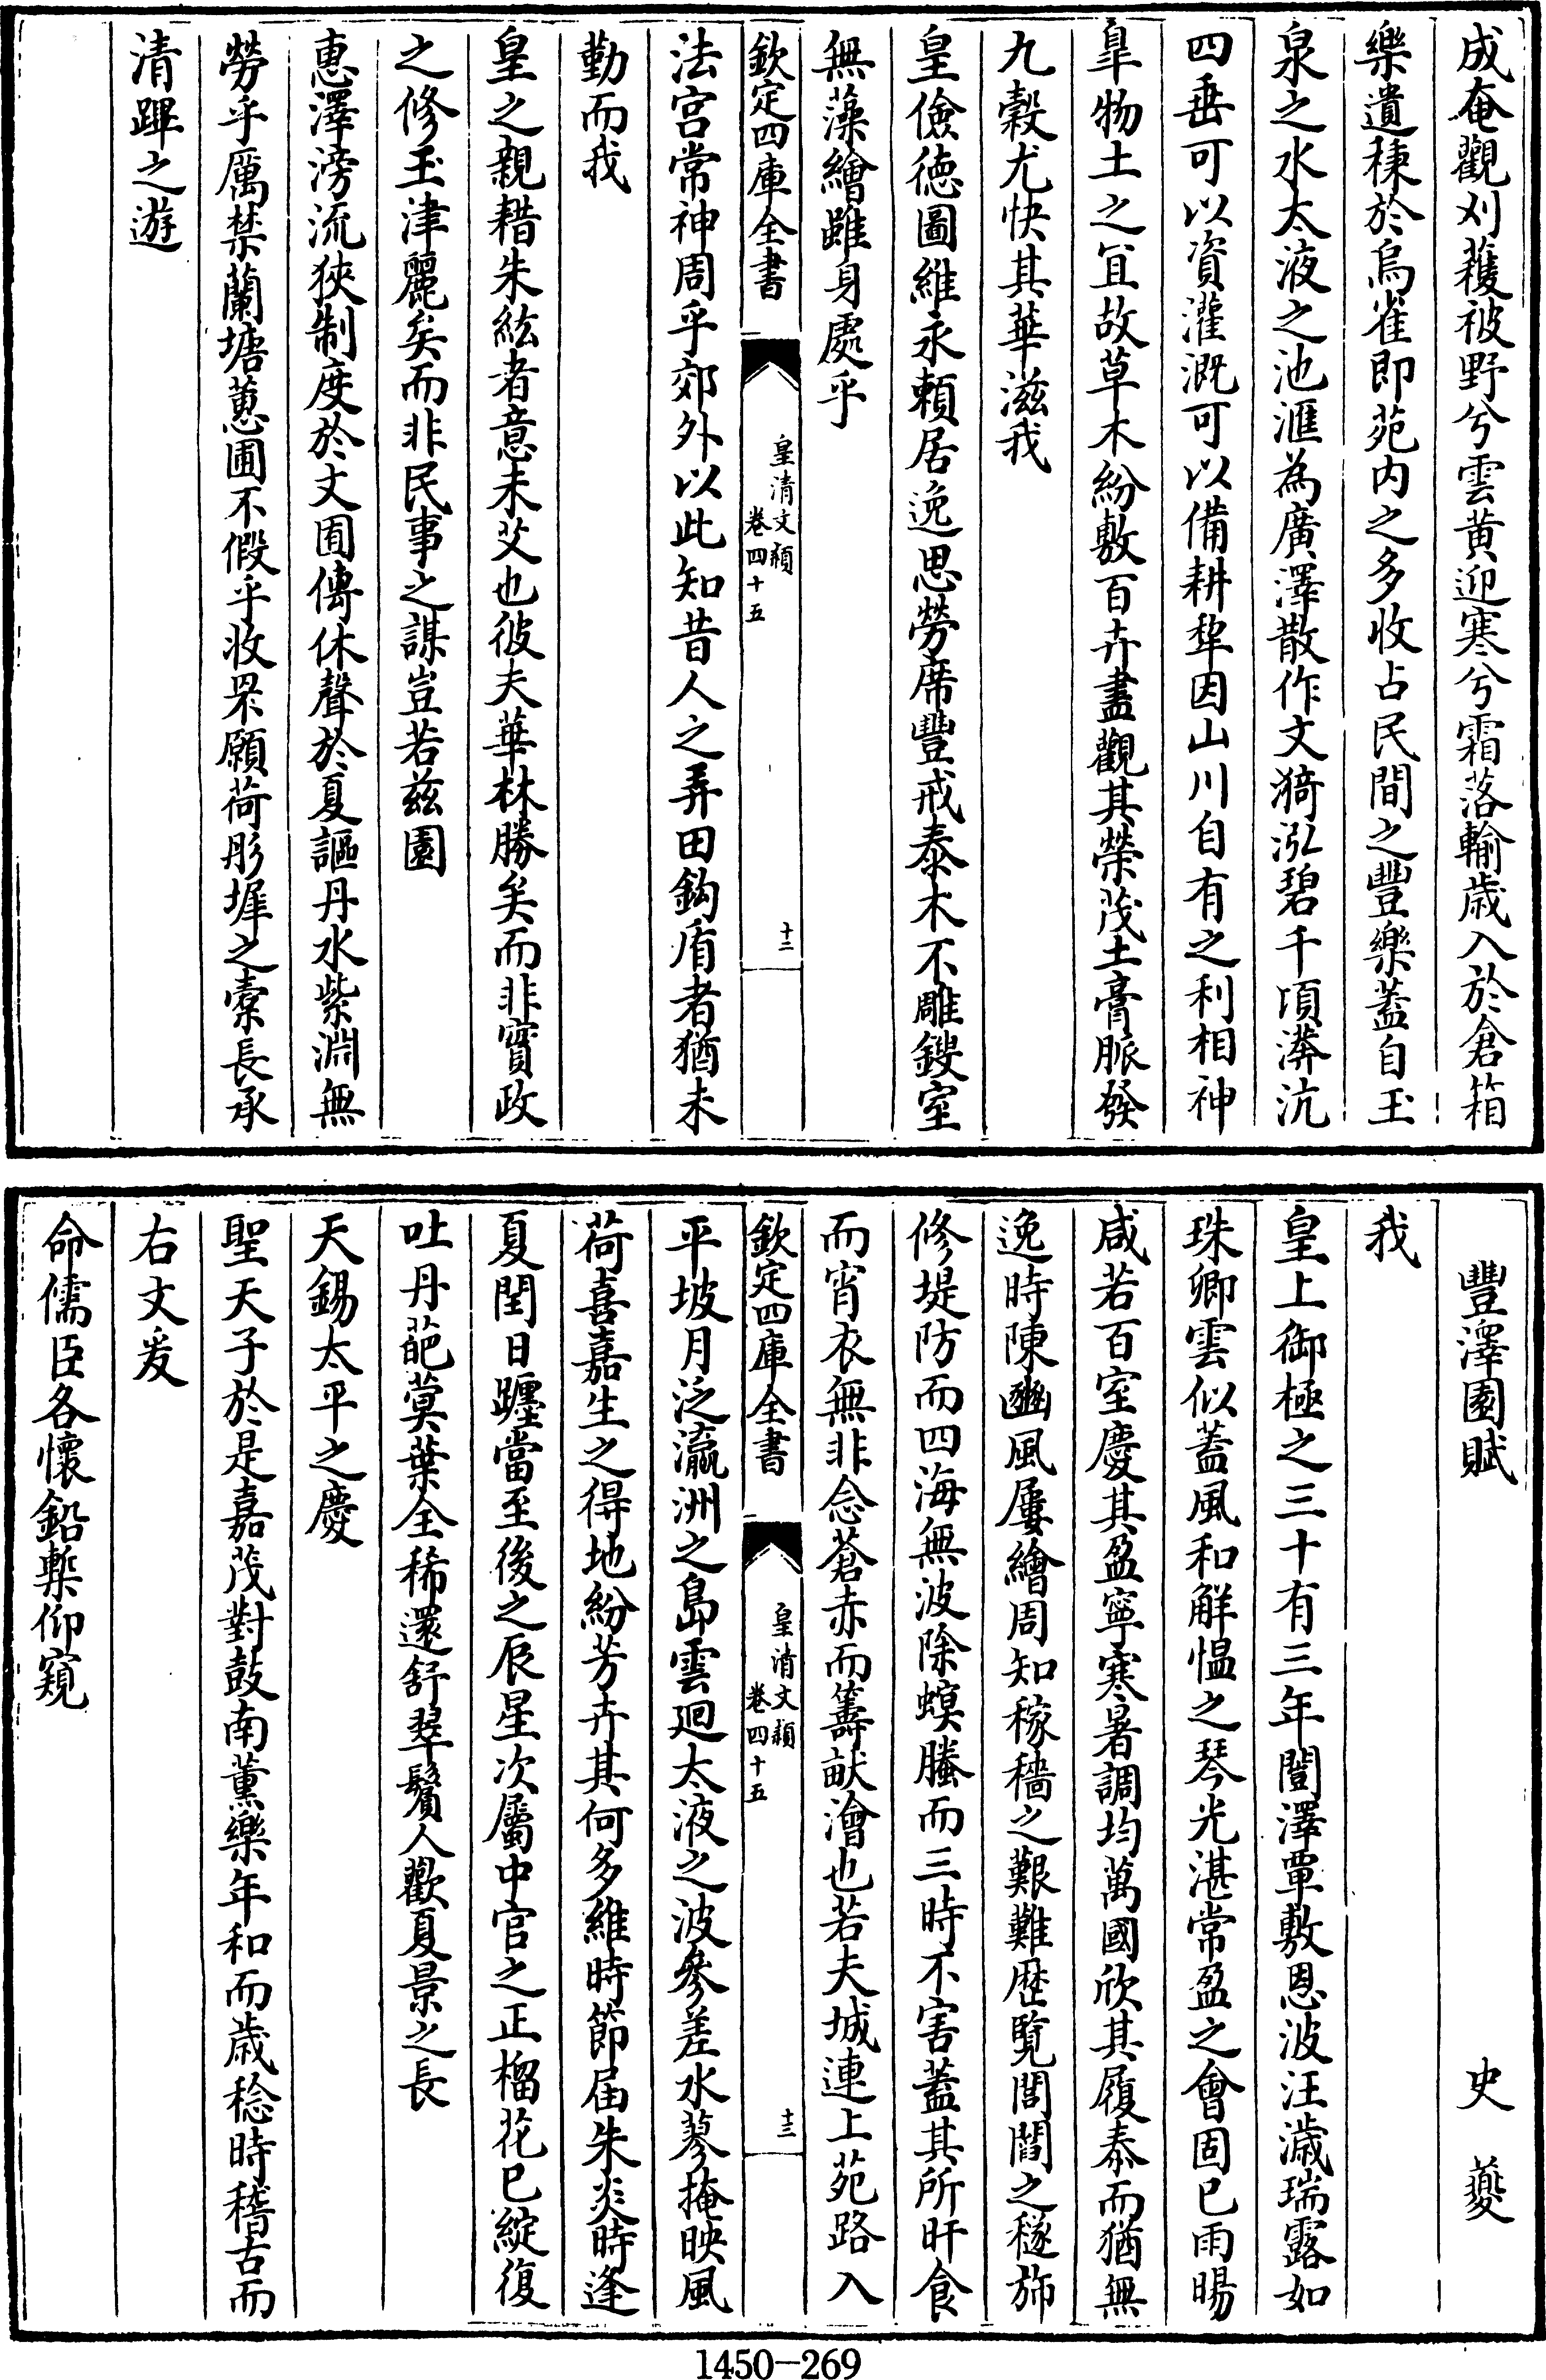 成奄觀刈蒦被野兮雲黄迎寒兮霜落輸歳入於倉箱
樂遺秉於烏雀即苑内之多收占民間之豐樂蓋自玉
泉之水太液之池滙為廣澤散作文漪泓碧千頃漭沆
四垂可以資灌溉可以備耕犂因山川自有之利相神
臯物土之宜故草木紛敷百卉盡觀其榮茂土膏脈發
九穀尤快其華滋我
皇儉徳圖維永頼居逸思勞席豐戒泰木不雕鎪室
無藻繪雖身處乎
欽定四庫全書
皇清文頴
卷四十五
十二
法宫常神周乎郊外以此知昔人之弄田鈎盾者猶未
勤而我
皇之親耤朱紘者意未艾也彼夫華林勝矣而非實政
之修玉津麗矣而非民事之謀豈若兹園
惠澤滂流狹制度於丈囿傳休聲於夏謳丹水紫淵無
勞乎厲禁蘭塘蕙圃不假乎收罘願荷彤墀之橐長承
清蹕之遊
豐澤園賦
史夔
我
皇上御極之三十有三年闓澤覃敷恩波汪濊瑞露如
珠卿雲似蓋風和解愠之琴光湛常盈之會固已雨暘
咸若百室慶其盈寧寒暑調均萬國欣其履泰而猶無
逸時陳豳風屢繪周知稼穡之艱難歴覧閭閻之穟斾
修堤防而四海無波除螟螣而三時不害蓋其所旰食
而宵衣無非念蒼赤而籌畎澮也若夫城連上苑路入
欽定四庫全書
皇清文頴
卷四十五
十三
平坡月泛瀛洲之島雲迴太液之波參差水蓼掩映風
荷喜嘉生之得地紛芳卉其何多維時節届朱炎時逢
夏閏日躔當至後之辰星次屬中官之正榴花已綻復
吐丹葩蓂葉全稀還舒翠鬢人歡夏景之長
天錫太平之慶
聖天子於是嘉茂對鼓南薰樂年和而歳稔時稽古而
右文爰
命儒臣各懷鉛槧仰窺
1450-269